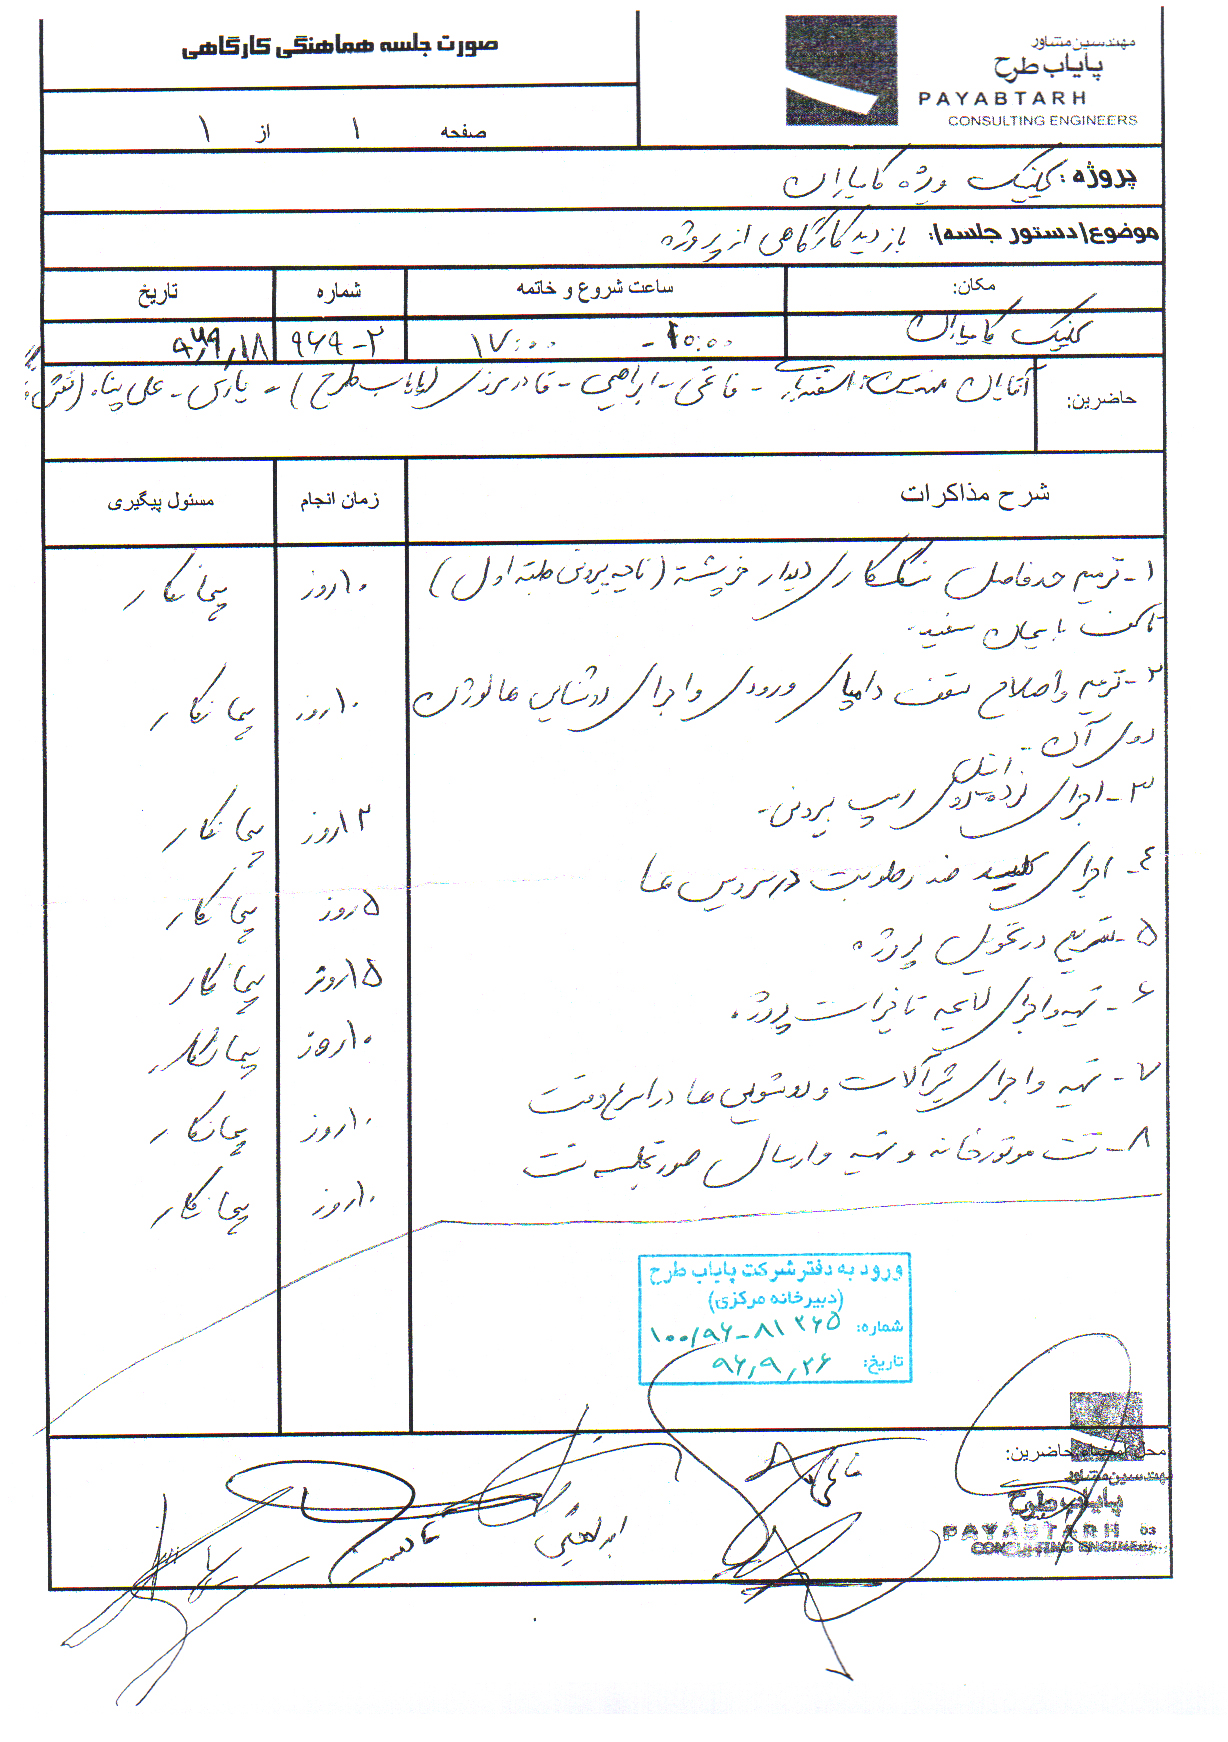 صورت جلسه هماهنگی کارگاهی
مهندسین مشاور
پایاب طرح
PAYABTARH
CONSULTING ENGINEERS
صفحه ۱ از ۱
پروژه: کلینیک ویژه کامیاران
موضوع(دستور جلسه): بازدید کارگاهی از پروژه
مکان: ساعت شروع و خاتمه شماره تاریخ
کلینیک کامیاران ۱۰:۰۰ - ۱۷:۰۰ ۹۶۹-۲ ۹۶/۹/۱۸
حاضرین: آقایان مهندس: - فاتحی - ابراهیمی - قادرمرزی (پایاب طرح) - پارس - علی پناه
شرح مذاکرات زمان انجام مسئول پیگیری
۱- ترمیم حدفاصل سنگ کاری دیدار خرپشته (ناحیه بیرونی طبقه اول) ۱۰ روز پیمانکار
با سیمان سفید.
۲- ترمیم و اصلاح سقف ورودی و اجرای روشنایی هالوژن ۱۰ روز پیمانکار
روی آن.
۳- اجرای نرده استیل روی رمپ بیرونی. ۱۲ روز پیمانکار
٤- اجرای ضد رطوبت در سرویس ها ۵ روز پیمانکار
۵- تسریع در تحویل پروژه ۱۵ روز پیمانکار
۶- تهیه و اجرای لایحه تاخیرات پروژه. ۱۰ روز پیمانکار
۷- تهیه و اجرای شیرآلات و روشویی ها در اسرع وقت ۱۰ روز پیمانکار
۸- تست موتورخانه و تهیه و ارسال صورتجلسه تست ۱۰ روز پیمانکار
ورود به دفتر شرکت پایاب طرح
(دبیرخانه مرکزی)
شماره: ۱۰۰/۹۶-۸۱۲۶۵
تاریخ: ۹۶/۹/۲۶
محل امضاء حاضرین:
مهندسین مشاور
پایاب طرح
PAYABTARH 03
CONSULTING ENGINEERS
فاتحی
ابراهیمی